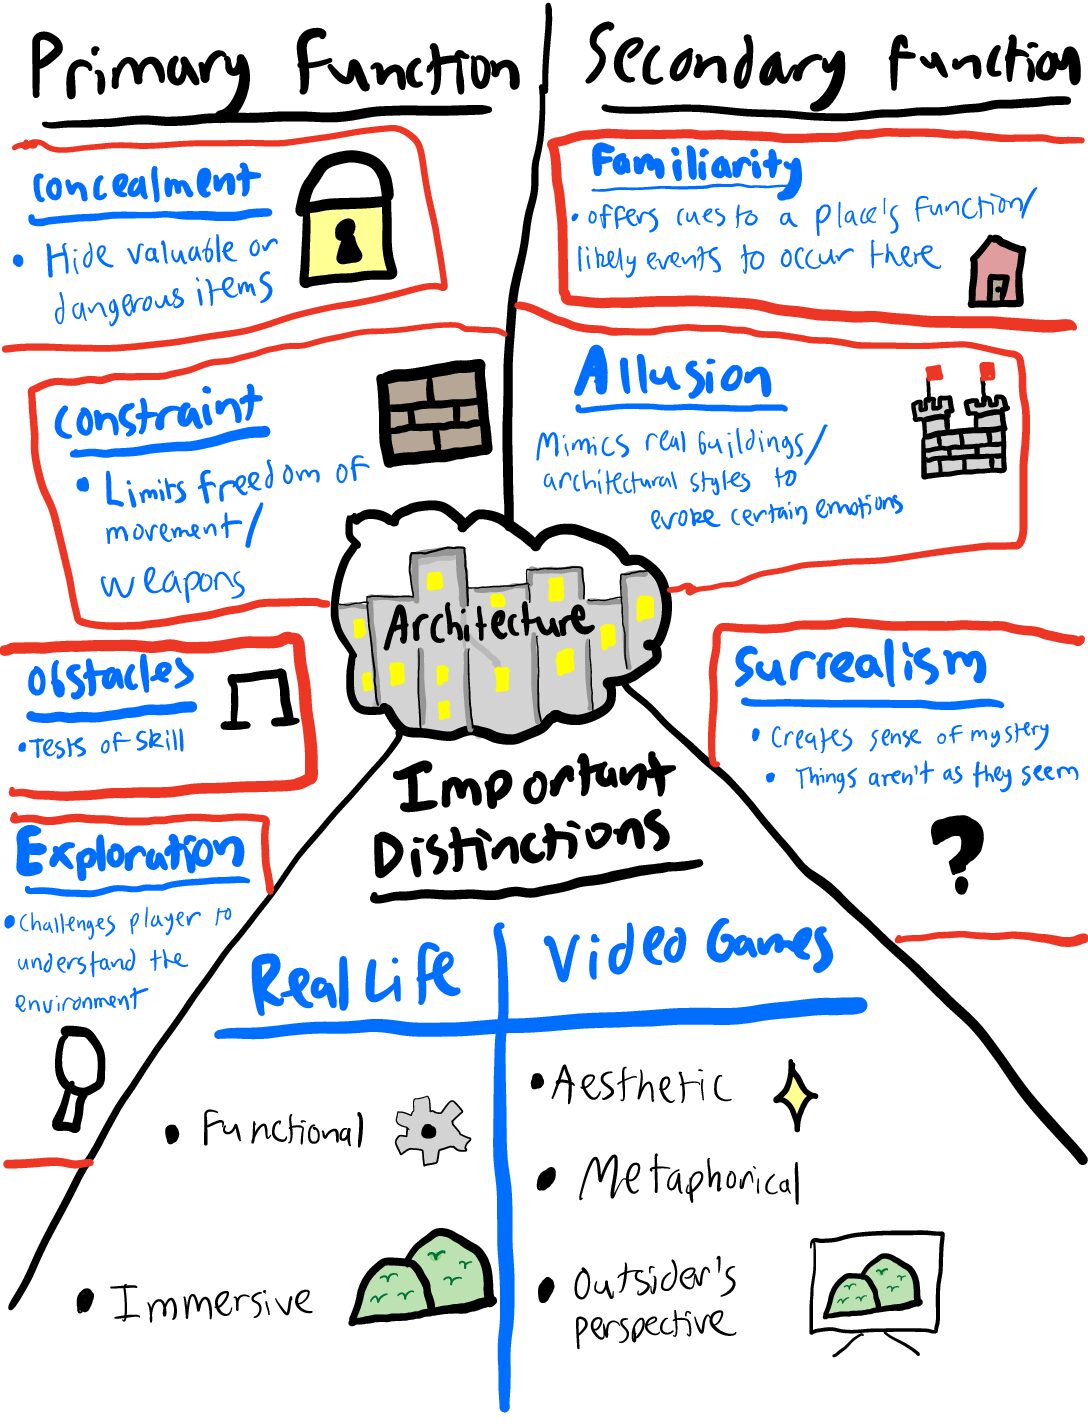 Primary Function
Concealment
• Hide valuable or
dangerous items
Constraint
• Limits freedom of
movement/
weapons
Obstacles
• Tests of skill
Exploration
• Challenges player to
understand the
environment
Secondary Function
Familiarity
• offers cues to a place's function/
likely events to occur there
Allusion
Mimics real buildings/
architectural styles to
evoke certain emotions
Surrealism
• Creates sense of mystery
• Things aren't as they seem
?
Architecture
Important
Distinctions
Real Life
• Functional
• Immersive
Video Games
• Aesthetic
• Metaphorical
• Outsider's
perspective